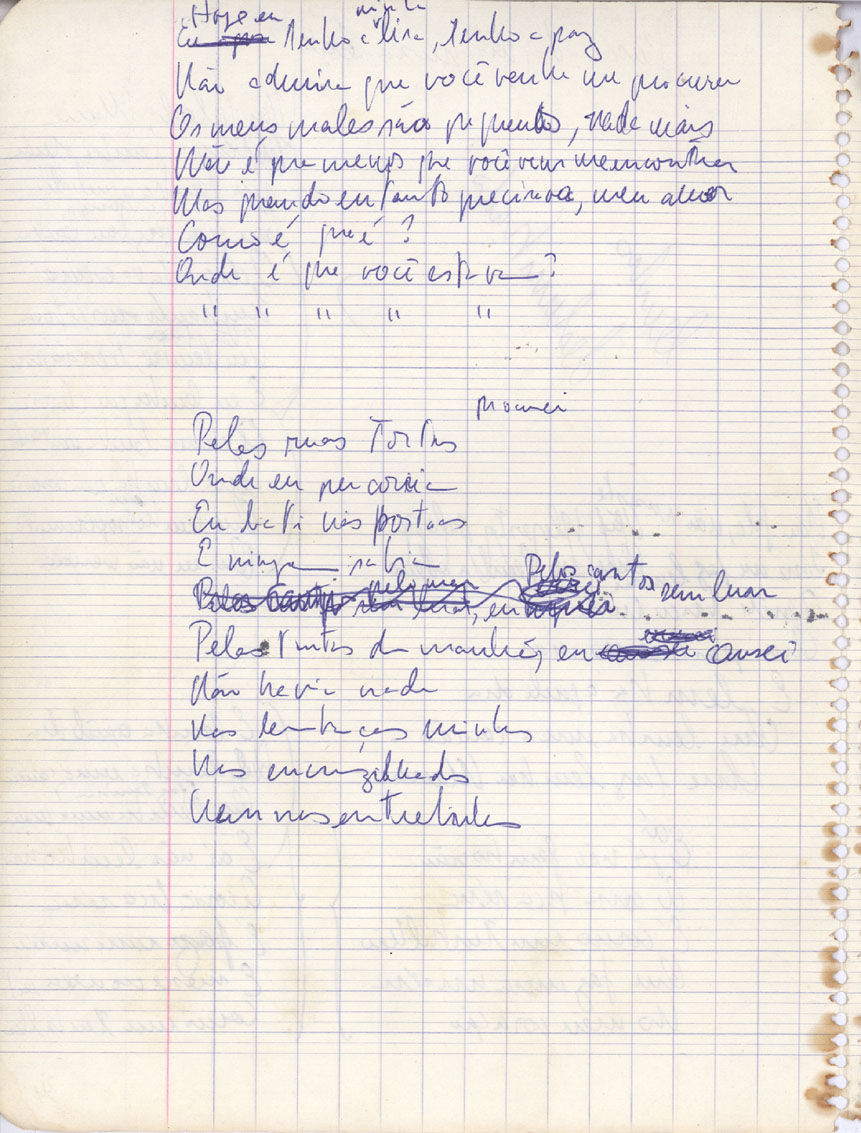 Hoje eu minha
Eu tenho a lira, tenho a paz
Não admira que você venha me procurar
Os meus males são pequenos, nada mais
Não é pra menos que você vem me encontrar
Mas quando eu tanto precisava, meu amor
Como é que é?
Onde é que você estava?
" " " " "
procurei
Pelas ruas tortas
Onde eu percorria
Eu bati nas portas
E ninguém sabia
Pelos cantos sem luar
Pelos cantos sem luar, eu
Pelas tintas da manhã, eu cansei
Não havia nada
Nas lembranças minhas
Nas encruzilhadas
Nem nas entrelinhas